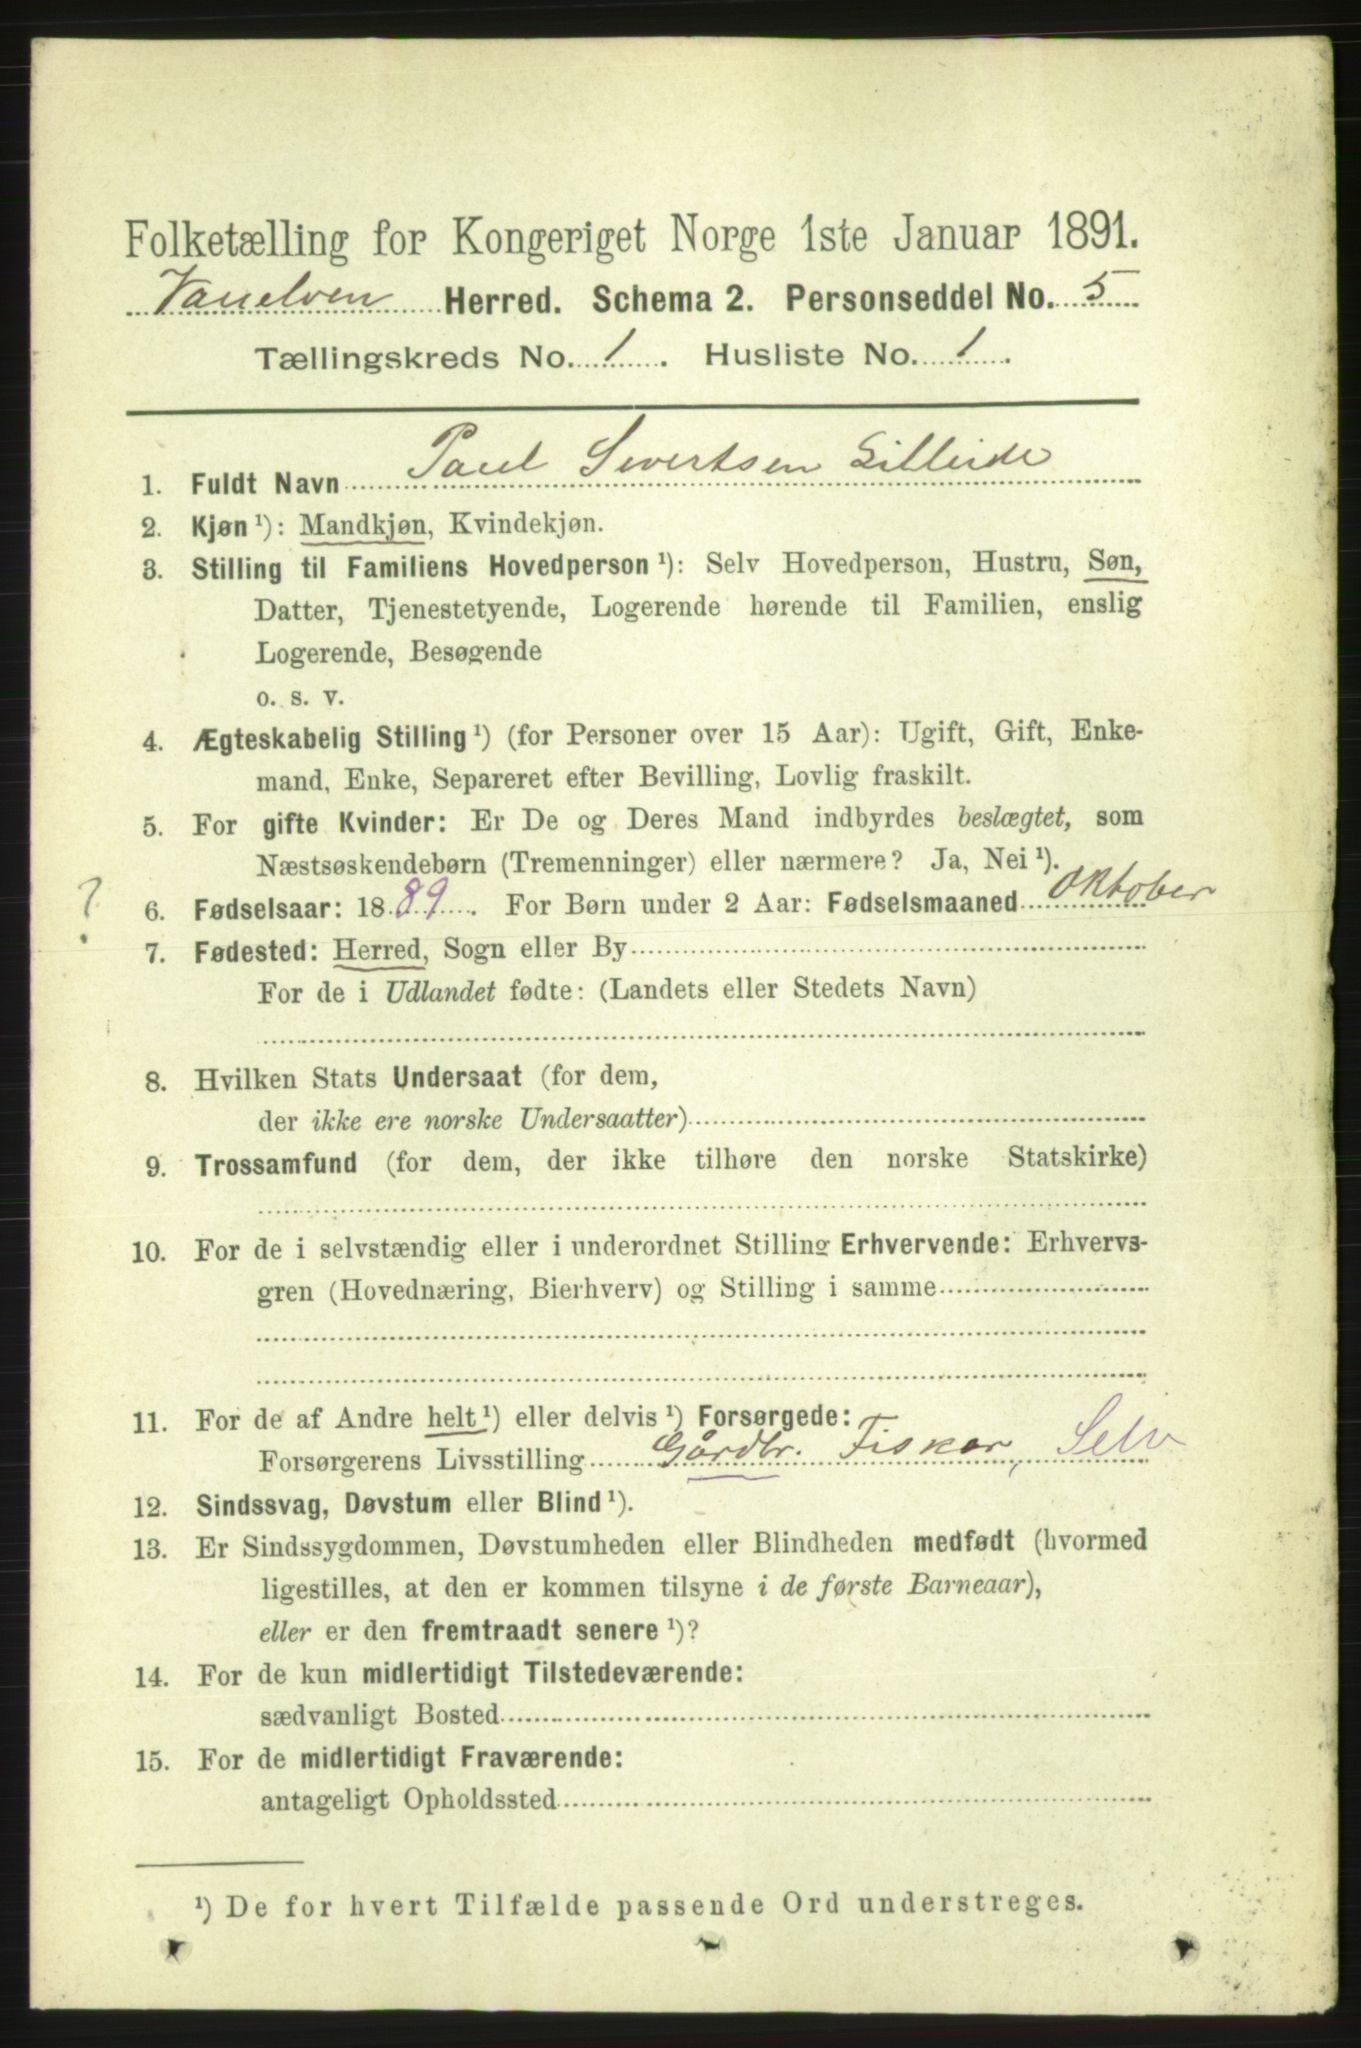 Folketælling for Kongeriget Norge 1ste Januar 1891.
Vanelven Herred. Schema 2. Personseddel No. 5
Tællingskreds No. 1. Husliste No. 1.
1. Fuldt Navn Paul Sivertsen Lilleide
2. Kjøn ¹): Mandkjøn, Kvindekjøn.
3. Stilling til Familiens Hovedperson ¹): Selv Hovedperson, Hustru, Søn,
Datter, Tjenestetyende, Logerende hørende til Familien, enslig
Logerende, Besøgende
o. s. v.
4. Ægteskabelig Stilling ¹) (for Personer over 15 Aar): Ugift, Gift, Enke-
mand, Enke, Separeret efter Bevilling, Lovlig fraskilt.
5. For gifte Kvinder: Er De og Deres Mand indbyrdes beslægtet, som
Næstsøskendebørn (Tremenninger) eller nærmere? Ja, Nei ¹).
? 6. Fødselsaar: 1889. For Børn under 2 Aar: Fødselsmaaned Oktober
7. Fødested: Herred, Sogn eller By
For de i Udlandet fødte: (Landets eller Stedets Navn)
8. Hvilken Stats Undersaat (for dem,
der ikke ere norske Undersaatter)
9. Trossamfund (for dem, der ikke tilhøre den norske Statskirke)
10. For de i selvstændig eller i underordnet Stilling Erhvervende: Erhvervs-
gren (Hovednæring, Bierhverv) og Stilling i samme
11. For de af Andre helt ¹) eller delvis ¹) Forsørgede:
Forsørgerens Livsstilling Gårdbr. Fisker, Selv
12. Sindssvag, Døvstum eller Blind ¹).
13. Er Sindssygdommen, Døvstumheden eller Blindheden medfødt (hvormed
ligestilles, at den er kommen tilsyne i de første Barneaar),
eller er den fremtraadt senere ¹)?
14. For de kun midlertidigt Tilstedeværende:
sædvanligt Bosted
15. For de midlertidigt Fraværende:
antageligt Opholdssted
¹) De for hvert Tilfælde passende Ord understreges.